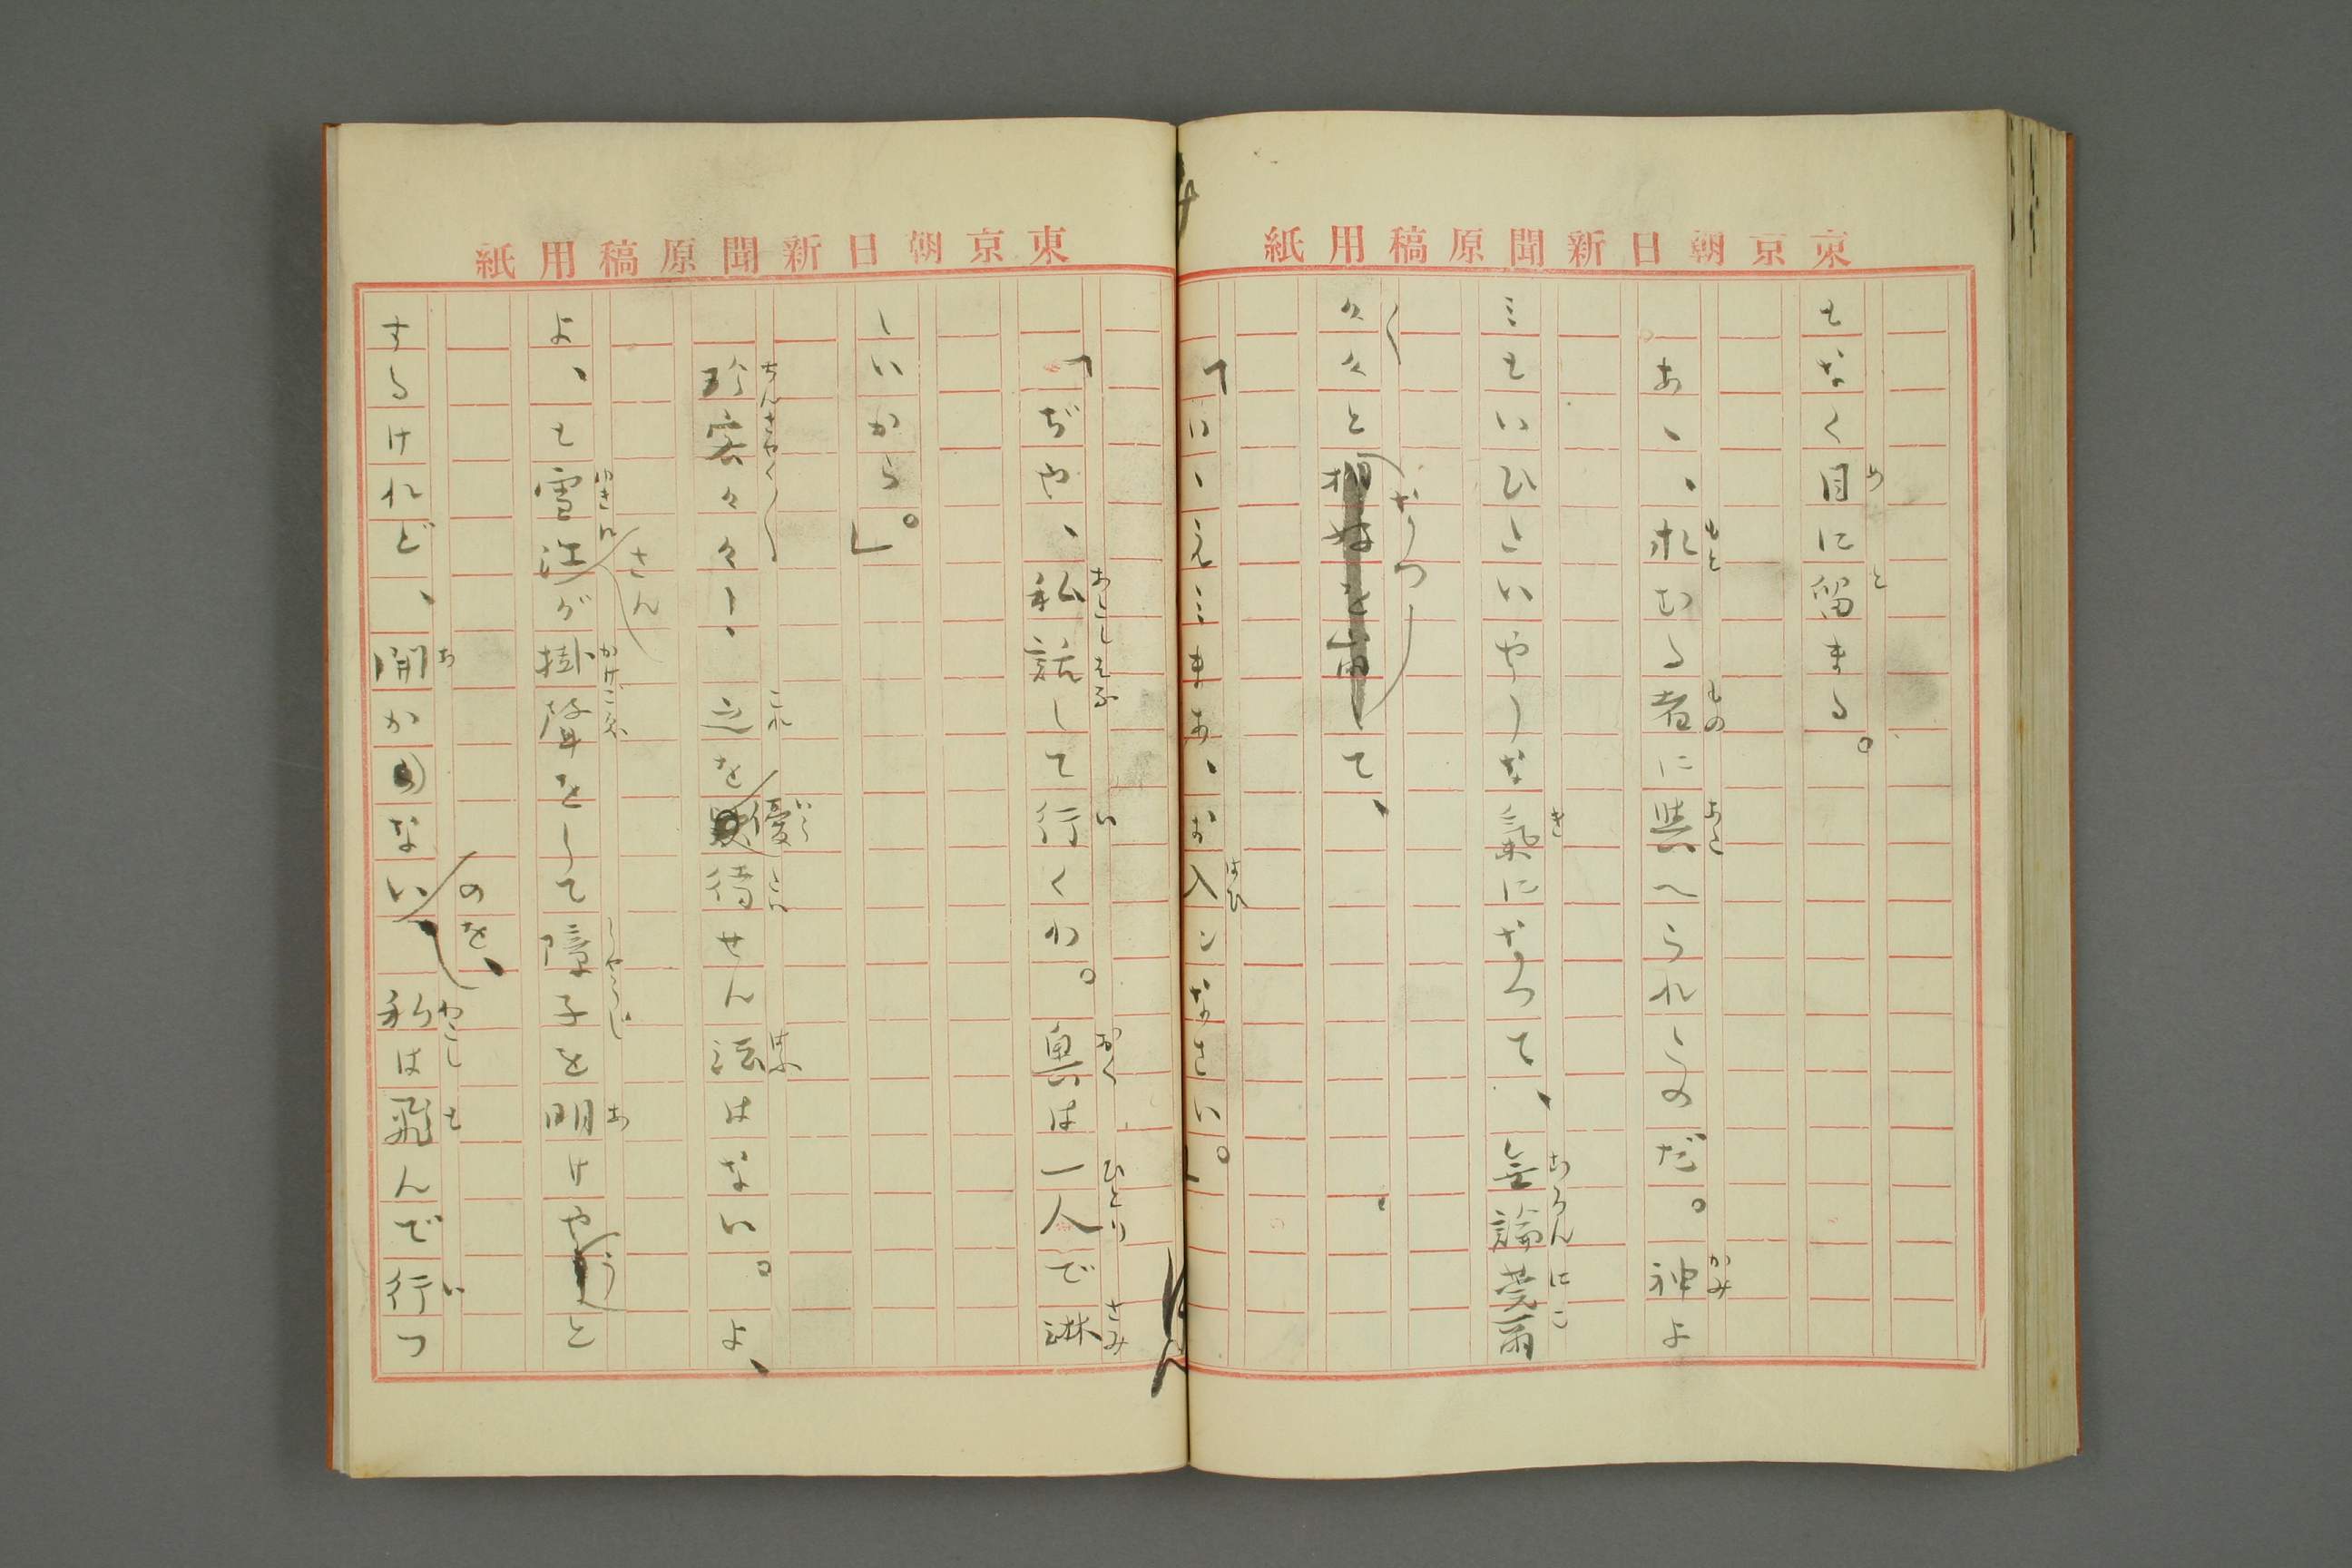 東京朝日新聞原稿用紙
もなく目に留まる。
あゝ、求むる者に與へられしのだ。神よ
ミもいひたいやうな氣になつて、無論莞爾
々々となつて、
「いゝえ……まあ、お入ンなさい。」
東京朝日新聞原稿用紙
「ぢや、私話して行くわ。奧は一人で淋
しいから。」
珍客々々！ 之を優待せん法はない。よ、
よ、と雪江さんが掛聲をして障子を明けやうと
するけれど、開かないのを、私は飛んで行つ